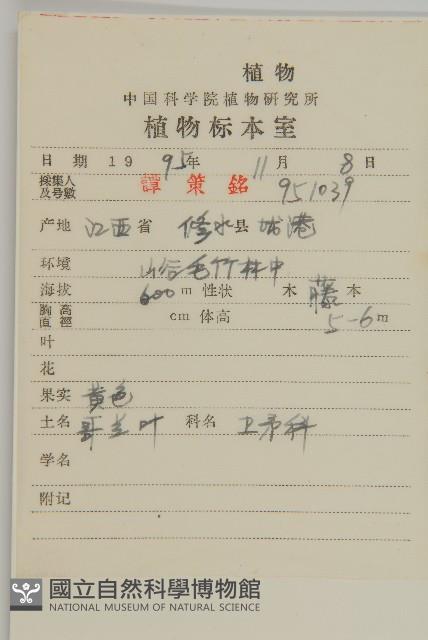 植物
中国科学院植物研究所
植物标本室
日期 1995年 11月 8日
採集人及号數 譚策銘 951039
产地 江西省 修水县 城港
环境 山谷毛竹林中
海拔 600m 性状 木 藤 本
胸高直徑 cm 体高 5-6m
叶
花
果实 黄色
土名 哥兰叶 科名 卫矛科
学名
附记
國立自然科學博物館
NATIONAL MUSEUM OF NATURAL SCIENCE